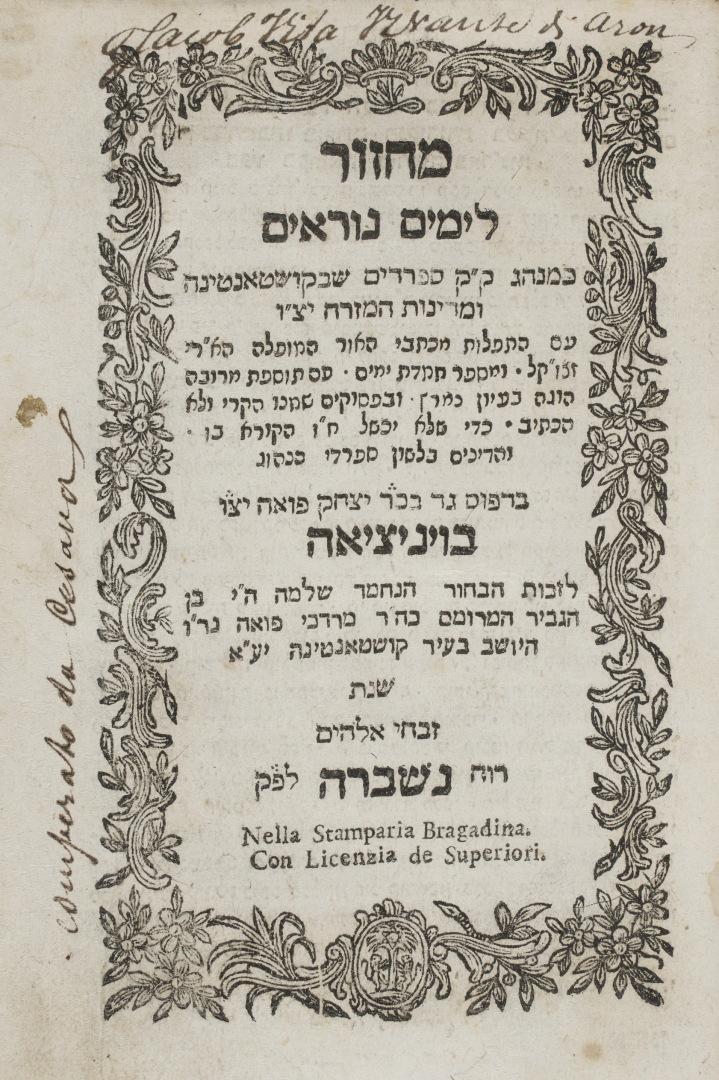 Jacob Vita Vivante di Aron
מחזור
לימים נוראים
כמנהג ק״ק ספרדים שבקושטאנטינה
ומדינות המזרח יצ״ו
עם התפלות מכתבי האור המופלה הא״רי
זצו״קל • ומספר חמדת ימים • עם תוספת מרובה
הוגה בעיון נמרץ • ובפסוקים שמנו הקרי ולא
הכתיב • כדי שלא יכשל ח״ו הקורא בו •
והדינים בלשון ספרדי כנהוג
בדפוס גד בכ״ר יצחק פואה יצ״ו
בויניציאה
לזכות הבחור הנחמד שלמה ה״י בן
הגביר המרומם כה״ר מרדכי פואה נר״ו
היושב בעיר קושטאנטינה יע״א
שנת
זבחי אלהים
רוח נשברה לפ״ק
Nella Stamparia Bragadina.
Con Licenzia de Superiori.
comperato da Cesana